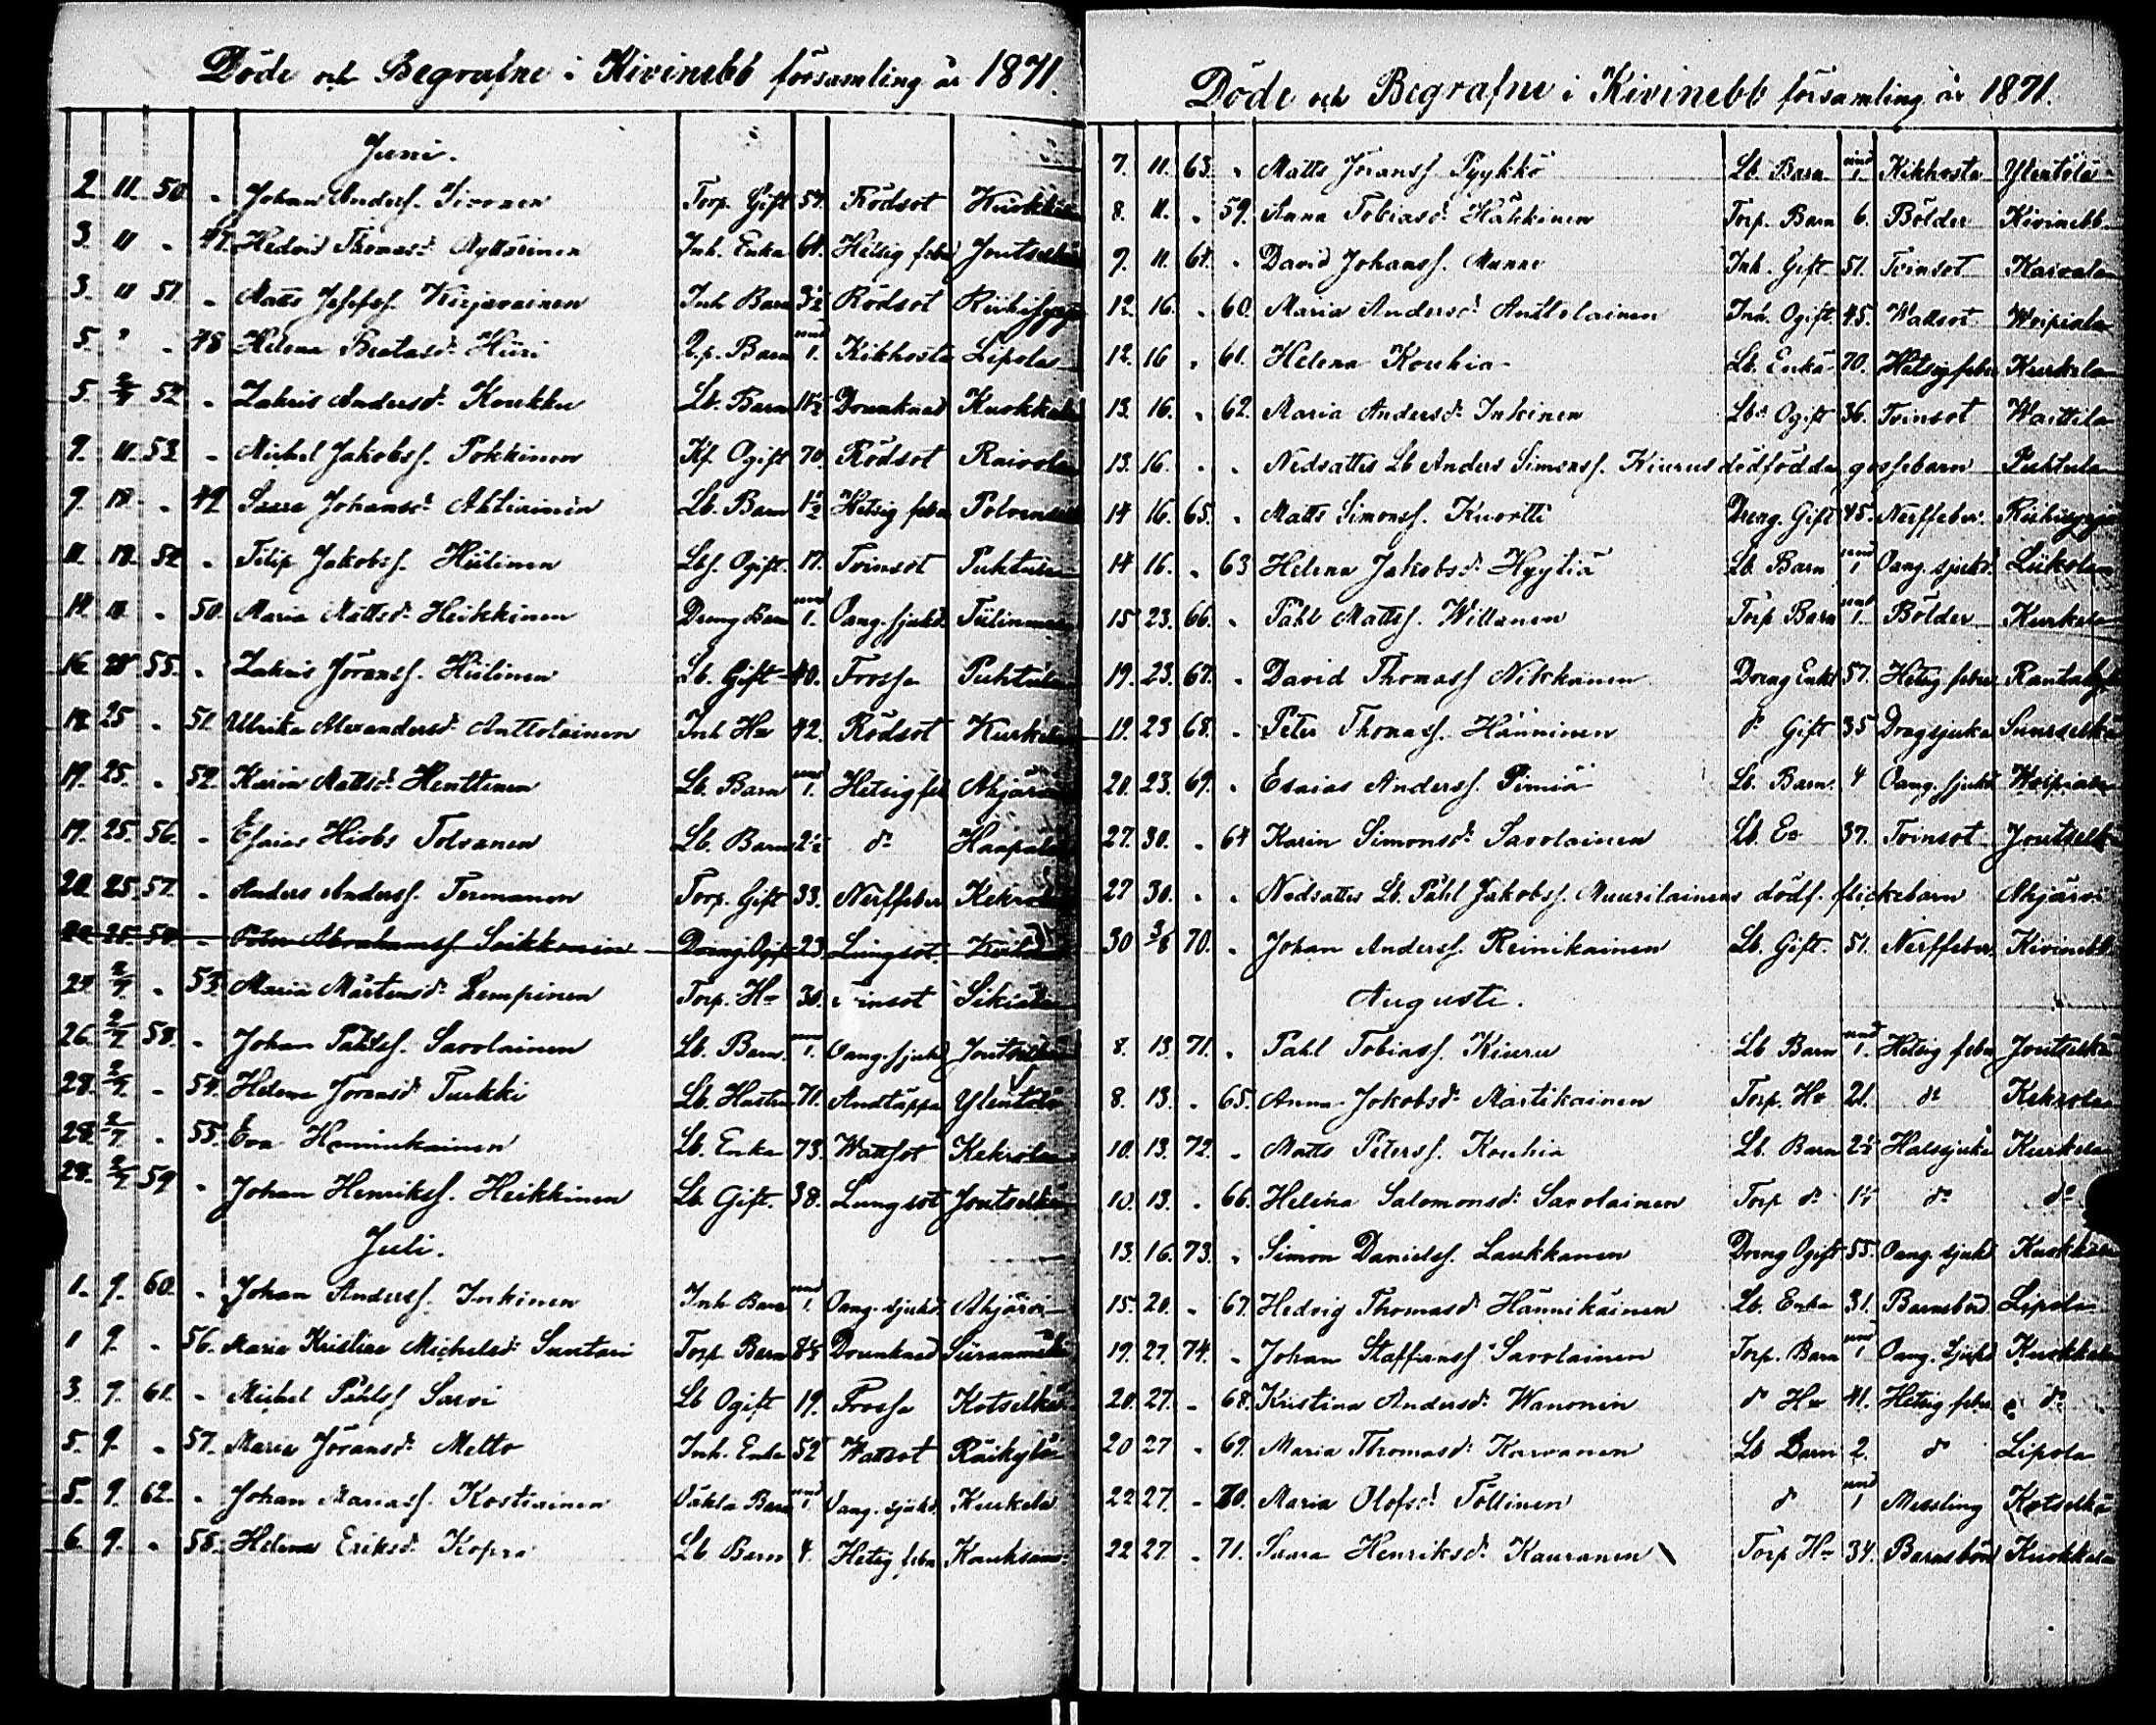 Döde och Begrafne i Kivinebb församling år 1871.
Juni.
2. 11. 50. " Johan Anderss. Sironen Torp. Gift 54. Rödsot Kuokkala
3. 11 " 47. Hedvid Thomasd: Inh. Enka 61. Hetsig feber Joutselkä
3. 11 51 " Matts Josefss. Kirjavainen Inh Barn 3½ Rödsot
5. " " 48 Helena Beatasd: Hiiri Barn 1. Kikhosta Lipola
5. 2/7 52 " Zakris Andersd: Koukku Lb. Barn 11½ Drunknad Kuokkala
9. 11. 53. " Michel Jakobss. Pokkinen Ogift 70. Rödsot Raivola
9. 18. " 49 Saara Johansd: Ahtiainen Lb. Barn 1½ Hetsig feber
11. 18. 54 " Filip Jakobss. Hiilinen Lbs. Ogift. 17. Tvinsot Puhtula
14. 18. " 50. Maria Mattsd: Heikkinen Dreng Barn 1. Oang. sjukd.
16. 25 55. " Zakris Jöranss. Hiilinen Lb. Gift 40. Frossa Puhtula
18. 25 " 51. Ulrika Alexandersd: Anttolainen Inh Hu 42. Rödsot Kurkela
19. 25. " 52. Karin Mattsd: Henttinen Lb. Barn 1. Hetsig feb Ahjärvi
19. 25. 56. " Esaias Hiobs Tolvanen Lb. Barn 2½ do Haapala
20. 25. 57. " Anders Anderss. Termanen Torp. Gift 33. Nerffeber Kekrola
20. 25. 58. " Peter Abrahamss. Seikkonen Dreng Ogift 23. Lungsot.
24. 2/7 " 53. Maria Mårtensd: Lempinen Torp. Hu 30. Tvinsot Sikiälä
26. 2/7 58. " Johan Påhlss. Savolainen Lb. Barn. 1. Oang. sjukd Joutselkä
28. 2/7 " 54. Helena Jöransd: Turkki Lb. Hustru 71. Andtäppa Ylentölä
28. 2/7 " 55. Eva Lb. Enka 73. Wattsot Kekrola
28. 2/7 59 " Johan Henrikss. Heikkinen Lb. Gift. 38. Lungsot Joutselkä
Juli.
1. 9. 60. " Johan Anderss. Inkinen Inh. Barn 1. Oang. sjukd. Ahjärvi
1 9. " 56. Maria Kristina Michelsd: Suntari Torp. Barn 8½ Drunknad Siiranmäki
3. 9. 61. " Michel Påhlss Sarvi Lb Ogift 19. Frossa Kotselkä
5. 9. " 57. Maria Jöransd: Metto Inh. Enka 52 Wattsot Räikylä
5. 9. 62. " Johan Mariass. Kostiainen Barn 1 Oang. sjukd. Kurkela
6. 9. " 58. Helena Eriksd: Kopra Lb Barn 4. Hetsig feber
Döde och Begrafne i Kivinebb församling år 1871.
7. 11. 63. " Matts Jöranss. Pyykkö Lb. Barn mnd 1. Kikhosta Ylentölä
8. 11. " 59. Anna Tobiasd: Häkkinen Torp. Barn 6. Bölder Kivinebb
9. 11. 64. " David Johanss. Munne Inh. Gift 51. Tvinsot Kaivola
12. 16. " 60. Maria Andersd: Anttolainen Inh. Ogift. 45. Wattsot Woipiala
12. 16 " 61. Helena Kouhia Lb. Enka 70. Hetsig feber Kurkela
13. 16. " 62. Maria Andersd: Inkinen Lbd: Ogift 36. Tvinsot Waittila
13. 16. " " Nedsattes Lb Anders Simonss. Kiurus dödfödda gossebarn Puhtula
14 16. 65. " Matts Simonss. Kuortti Dreng. Gift 45. Nerffeber.
14 16. " 63 Helena Jakobsd: Hyytiä Lb. Barn mnd 1 Oang. sjukd. Liikola
15 23. 66. " Påhl Mattss. Willanen Torp Barn mnd 1. Bölder Kurkela
19. 23. 67. " David Thomass Nikkanen Dreng Enkl 57. Hetsig feber Rantakylä
19. 23 68. " Peter Thomass. Hänninen do Gift 35 Dragsjuka Suurselkä
20. 23. 69. " Esaias Anderss. Pimiä Lb. Barn. 4 Oang. sjukd Woipiala
27. 30. " 64 Karin Simonsd: Savolainen Lb. Ea 37. Tvinsot Joutselkä
27 30. " " Nedsattes Lb. Påhl Jakobss. Muurilainens dödf. flickebarn Ahjärvi
30 3/8 70. " Johan Anderss. Reinikainen Lb. Gift. 51. Nerffeber. Kivinebb
Augusti.
8. 13 71. " Pahl Tobiass. Kiuru Lb Barn mnd 1. Hetsig feber Joutselkä
8. 13. " 65. Anna Jakobsd: Martikainen Torp. Hu 21. do Kekrola
10. 13. 72. " Matts Peterss. Kouhia Lb. Barn 2½ Halssjuka Kurkela
10. 13. " 66. Helena Salomonsd: Savolainen Torp do 1½ do do
13. 16. 73. " Simon Danielss. Laukkanen Dreng Ogift 55. Oang. sjukd Kuokkala
15. 20. " 67. Hedvig Thomasd Hännikäinen Lb. Enka 31. Barnsbörd Lipola
19. 27. 74. " Johan Staffanss Savolainen Torp. Barn mnd 1 Oang. Sjukd Kuokkala
20. 27. " 68. Kristina Andersd: Wanonen do Hu 41. Hetsig feber do
20 27 " 69. Maria Thomasd: Karvanen Lb Barn 2. do Lipola
22 27. " 70. Maria Olofsd: Töllinen do mnd 1 Messling Kotselkä
22 27. " 71. Saara Henriksd: Kauranen Torp Hu 34. Barnsbörd Kuokkala